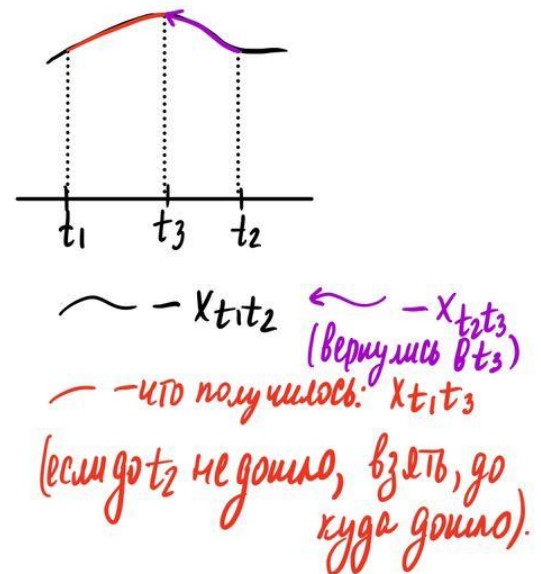 t₁ t₃ t₂
— X t₁t₂
— X t₂t₃
(вернулись в t₃)
— что получилось: X t₁t₃
(если до t₂ не дошло, взять, до
куда дошло).